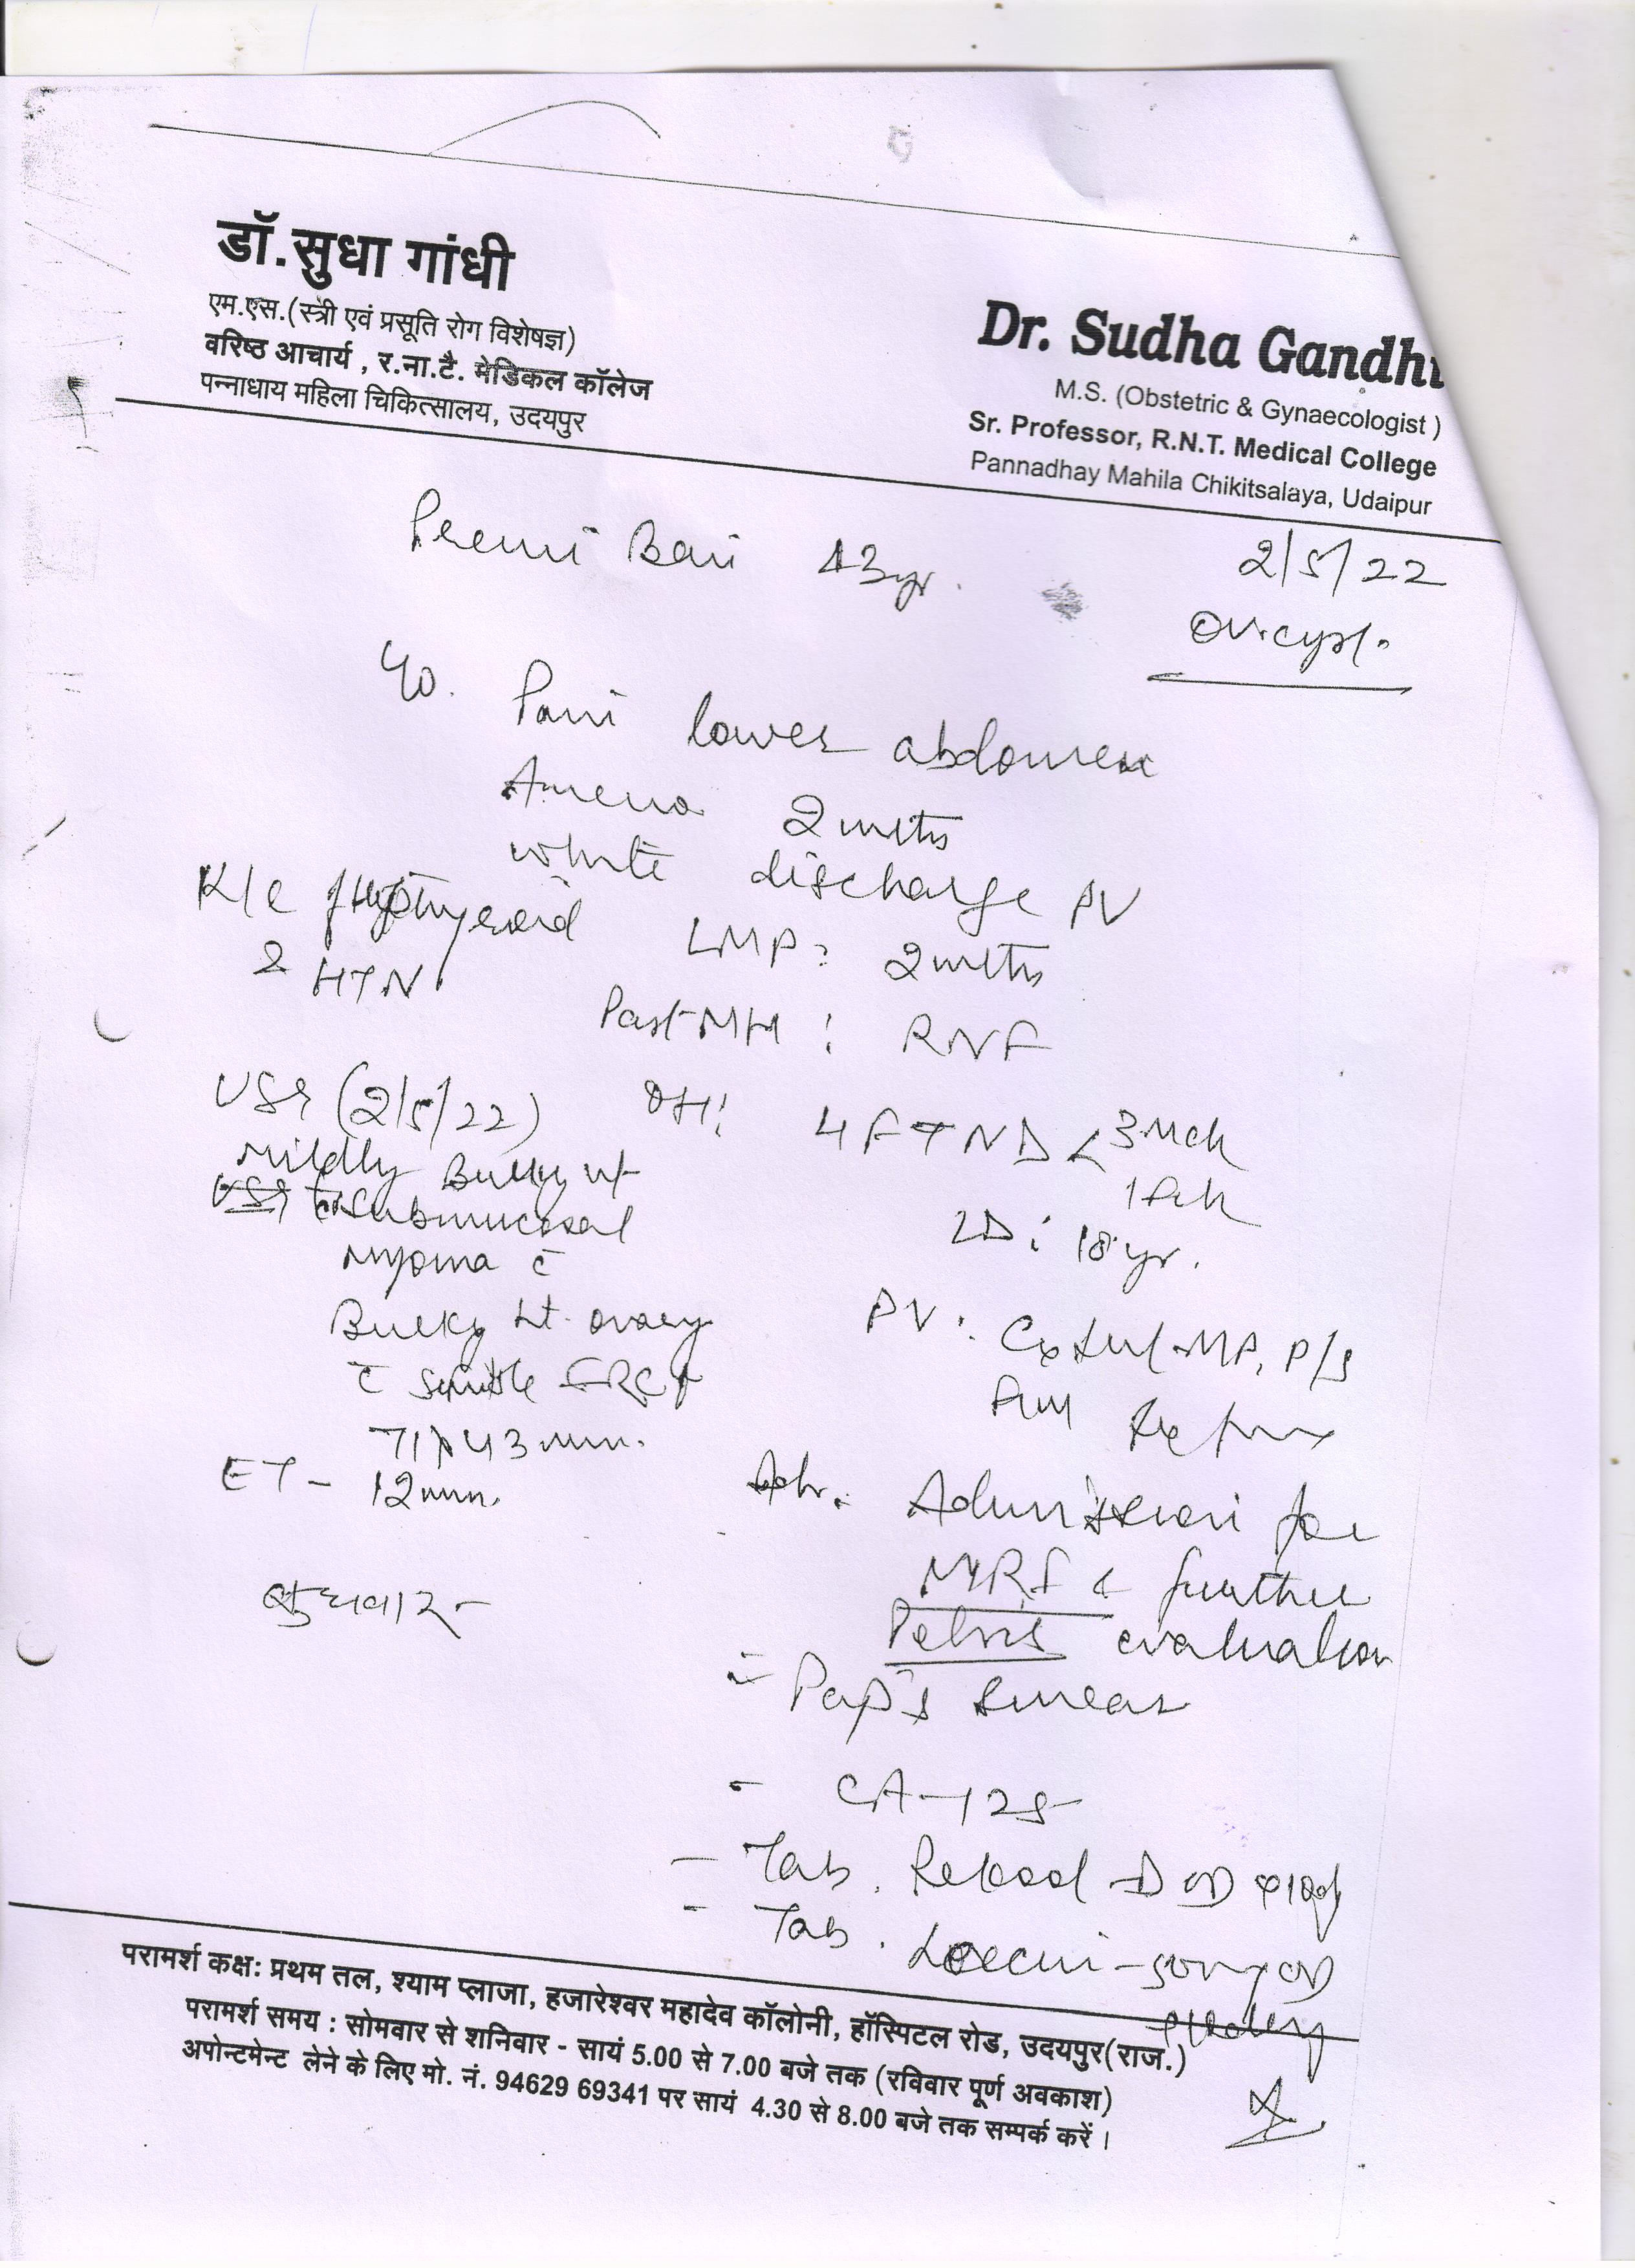 डॉ.सुधा गांधी
एम.एस.(स्त्री एवं प्रसूति रोग विशेषज्ञ)
वरिष्ठ आचार्य , र.ना.टै. मेडिकल कॉलेज
पन्नाधाय महिला चिकित्सालय, उदयपुर
Dr. Sudha Gandhi
M.S. (Obstetric & Gynaecologist )
Sr. Professor, R.N.T. Medical College
Pannadhay Mahila Chikitsalaya, Udaipur
Premi Bai 43yr.
2/5/22
Ov. cyst.
C/o. Pain lower abdomen
2 mths
white discharge PV
K/C
& HTN
LMP: 2 mths
Past MH:
USG (2/5/22)
Mildly Bulky ut
c̄ submucosal
myoma c̄
Bulky Lt. ovary
c̄
71x43 mm.
ET - 12 mm.
बुधवार -
OH: 4 FTND < 3 Mch
1 Fch
LD: 18 yr.
PV: Cx
Adv. Admission for
MRI & further
Pelvis evaluation
- Pap's smear
- CA-125
- Tab.
- Tab.
परामर्श कक्ष: प्रथम तल, श्याम प्लाजा, हजारेश्वर महादेव कॉलोनी, हॉस्पिटल रोड, उदयपुर(राज.)
परामर्श समय : सोमवार से शनिवार - सायं 5.00 से 7.00 बजे तक (रविवार पूर्ण अवकाश)
अपोन्टमेन्ट लेने के लिए मो. नं. 94629 69341 पर सायं 4.30 से 8.00 बजे तक सम्पर्क करें ।